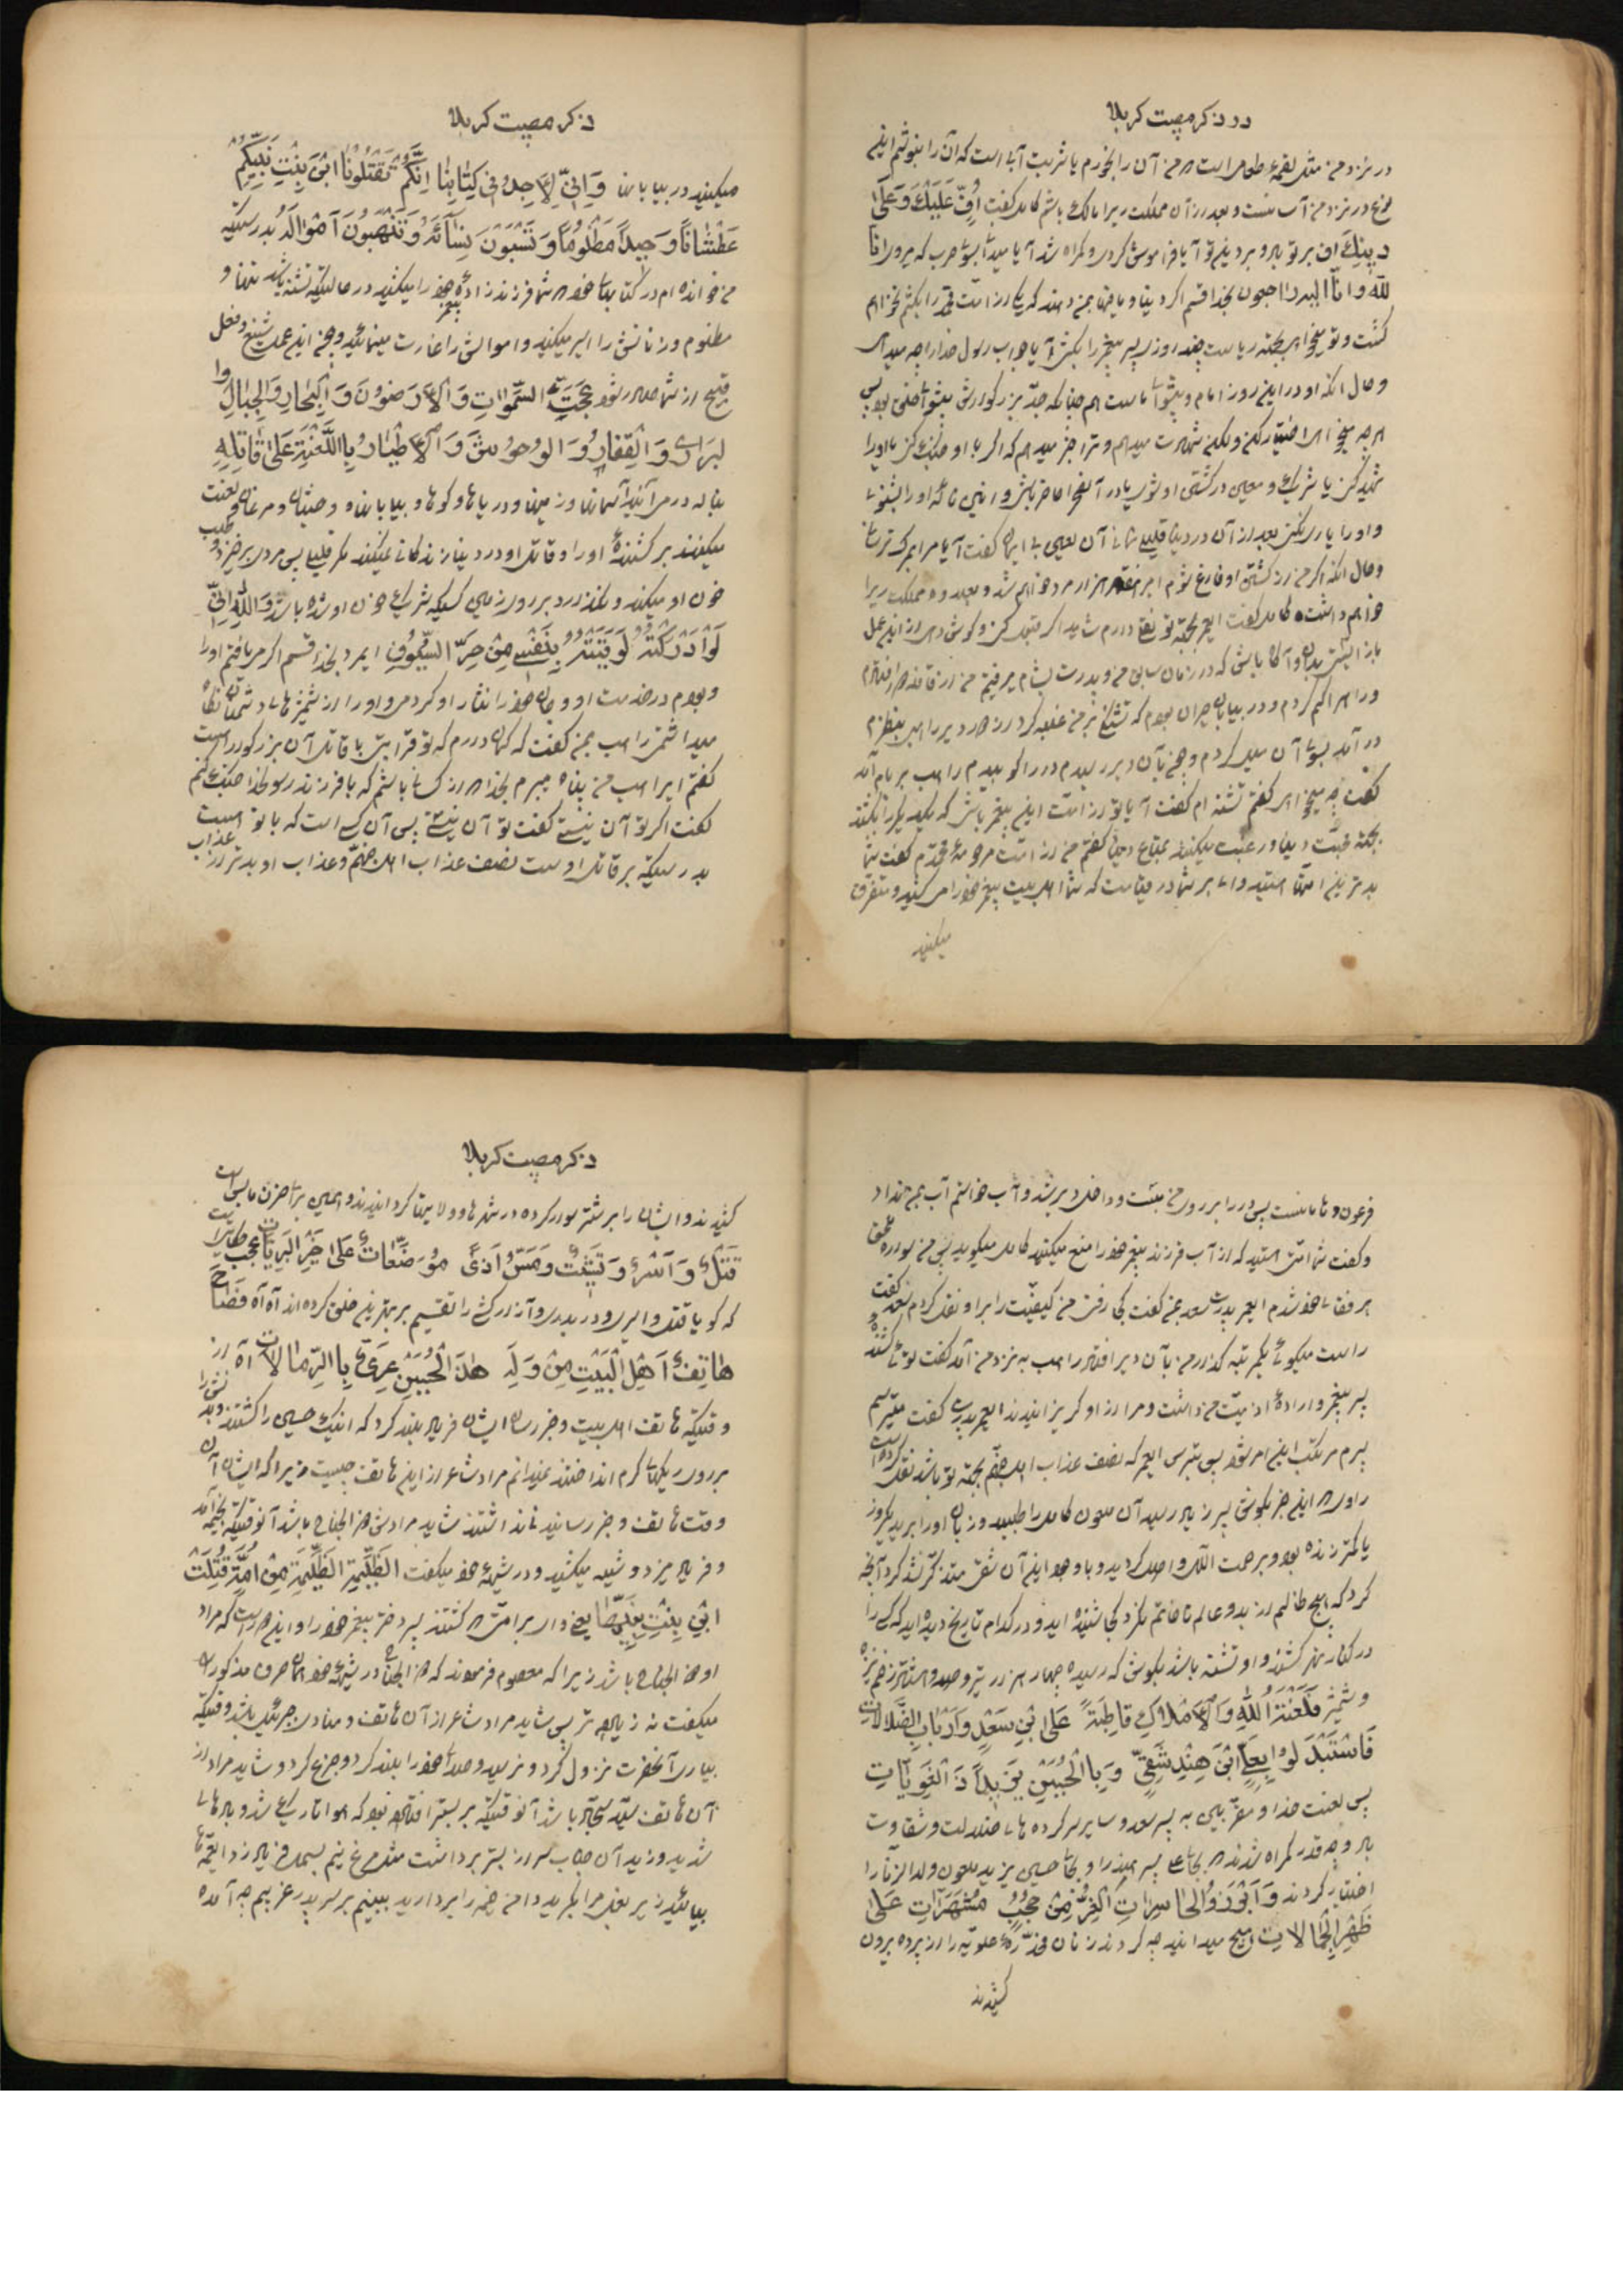 در ذکر مصیبت کربلا
در نزد من مثل لقمهٔ طعامی است که من آن را بخورم یا شربت آبی است که آن را بنوشم این
در نزد من آسانست و بعد از آن مملکت ری را مالک باشم کامل گفت اُفٍّ عَلَیْكَ وَعَلیٰ
دِینِكَ اف بر تو باد و بر دین تو آیا فراموش کردی و گمراه شدی آیا میدانی بسوی حرب که میروی انا
لله و انا الیه راجعون بخدا قسم اگر دنیا و مافیها بمن دهند که یکی از امت محمد را بکشم نخواهم
کشت و تو میخواهی بجهة ریاست چند روزی پسر پیغمبر را بکشی آیا جواب رسول خدا را چه میدهی
و حال آنکه او در این روز امام و پیشوای ماست هم چنانکه جد بزرگوارش پیشوای خلق بود پس
هر چه میخواهی اختیار کن ولکن شهادت میدهم و ترا خبر میدهم که اگر با او جنگ کنی یا او را
شهید کنی یا شریک و معین در کشتن او شوی یا در آنجا حاضر باشی و انین ناله او را بشنوی
و او را یاری نکنی بعد از آن در دنیا قلیلی نمانی آن لعین بی ایمان گفت آیا مرا بمرگ ترسانی
و حال آنکه اگر من از کشتن او فارغ شوم امیر هفتاد هزار مرد خواهم شد و بعد از آن مملکت ری را
خواهم داشت کامل گفت ایعمر بجهة تو نقلی دارم شاید اگر قبول کنی و گوش دهی از این عمل
باز ایستی بدان و آگاه باش که در زمان سابق من و پدرت بشام میرفتیم من از قافله دور افتادم
و راه را گم کردم و در بیابان حیران بودم که تشنگی بر من غلبه کرد از دور دیر راهبی بنظرم
در آمد بسوی آن میل کردم و چون بآن دیر رسیدم در را کوبیدم راهب بر بام آمد
گفت چه میخواهی گفتم تشنه ام گفت آیا تو از امت این پیغمبر باشی که یکدیگر را بکشند
بجهة محبت دنیا و رغبت میکنند بمتاع دنیا گفتم من از امت مرحومهٔ محمدم گفت شما
بدترین امتها هستید وای بر شما در قیامت که شما اهل بیت پیغمبر خود را میکشید و متفرق
میکنید
ذکر مصیبت کربلا
میکنید در بیابانها وَاِنّی لَاَجِدُ فی کِتابِنا اِنَّکُمْ تَقْتُلُونَ ابْنَ بِنْتِ نَبِیِّکُمْ
عَطْشاناً وَحِیداً مَظْلُوماً وَتَسْبُونَ نِسآئَهُ وَتَنْهَبُونَ اَمْوالَهُ بدرستیکه
من خوانده ام در کتابهای خود که شما فرزند زادهٔ پیغمبر خود را میکشید در حالتیکه تشنه باشد و تنها و
مظلوم و زنانش را اسیر میکنید و اموالش را غارت مینمائید و چون این عمل شنیع و فعل
قبیح از شما صادر شود عَجَّتِ السَّمواتُ وَالْاَرَضُونَ وَالْبِحارُ وَالْجِبالُ وَا
لْبَراری وَالْقِفارُ وَالْوُحُوشُ وَالْاَطْیارُ بِاللَّعْنَةِ عَلیٰ قاتِلِهِ
بناله در می آیند آسمانها و زمینها و دریاها و کوهها و بیابانها و وحشیان و مرغان و لعنت
میکنند بر کشندهٔ او را و قاتل او در دنیا زندگانی نمیکند مگر قلیلی پس مردی برخیزد و طلب
خون او میکند و نگذارد بر روی زمین کسیکه شریک خون او شده باشد وَاللهِ اِنّی
لَوْ اَدْرَکْتُهُ لَوَقَیْتُهُ بِنَفْسی مِنْ حَرِّ السُّیُوفِ ایمرد بخدا قسم اگر می یافتم او را
و بودم در خدمت او و جان خود را نثار او کردمی و او را از شمشیرهای دشمنان نگاه
میداشتم راهب بمن گفت که گمان دارم که تو قرابتی با قاتل آن بزرگوار است
گفتم ایراهب من پناه میبرم بخدا که از کسانی باشم که با فرزند رسولخدا جنگ کنم
گفت اگر تو آن نیستی گفت تو آن نیستی پس آن کسی است که با تو است
بدرستیکه بر قاتل اوست نصف عذاب اهل جهنم و عذاب او بدتر از عذاب
فرعون و هامانست پس در را بر روی من بست و داخل دیر شد و آب خواستم آب بمن نداد
و گفت شما امتی هستید که از آب فرزند پیغمبر خود را منع میکنید کامل میگوید پس من سوار شده ملحق
برفقای خود شدم ایعمر پدرت سعد بمن گفت کجا رفتی من کیفیت را برای او نقل کردم سعد گفت
راست میگوئی یکمرتبه گذار من بآن دیر افتاد راهب به نزد من آمد گفت توئی کشنده
پسر پیغمبر و ارادهٔ اذیت من داشت و مرا از او گریزانیدند ایعمر پدرت گفت میترسم
پسرم مرتکب این امر شود پس بترس ایعمر که نصف عذاب اهل جهنم بجهة تو باشد نقل کرده است
راوی که این خبر بگوش پسر زیاد رسید آن ملعون کامل را طلبید و زبان او را برید یکروز
یا کمتر زنده بود و برحمت الله واصل گردید و با وجود این آن شقی متذکر نشد کرد آنچه
کرد که هیچ ظالمی از بدو عالم تا خاتم نکرد کجا شنیده اید و در کدام تاریخ دیده اید که کسی را
در کنار نهر کشتند و او تشنه باشد بگوش که رسیده چهار هزار تیر و صد و هشتاد زخم نیزه
و شمشیر فَلَعْنَةُ اللهِ وَالْاَمْلاكِ قاطِبَةً عَلَی ابْنِ سَعْدٍ وَاَرْبابِ الضَّلالاتِ
فَاسْتَبْدَلُوا بِعَلِیٍّ ابْنَ هِنْدِ شَقِیٍّ وَبِالْحُسَیْنِ یَزِیداً ذَا الْغَوایاتِ
پس لعنت خدا و مقربین به پسر سعد و سایر سرکرده های ضلالت و شقاوت
باد و چه قدر گمراه شدند که بجای علی پسر هند را و بجای حسین یزید ملعون ولدالزنا را
اختیار کردند وَاَبْرَزُوا لْحاسِراتِ الْغُرِّ مِنْ حُجُبٍ مُشَهَّراتٍ عَلیٰ
ظَهْرِ الْجُمالاتِ هیچ میدانید چه کردند زنان مخدرهٔ علویه را از پرده بیرون
کشیدند
ذکر مصیبت کربلا
کشیدند و ایشان را بر شتر سوار کرده در شهرها و ولایتها گردانیدند و همین برای حزن ما بس است
قَتْلٌ وَاَسْرٌ وَتَشْتِیتٌ وَمَسُّ اَذیً مُوَضَّعاتٌ عَلیٰ خَیْرِ الْبَرِیّاتِ عجب حکایتیست
که گویا قتل و اسیری و دربدری و آزار کشی را تقسیم بر بهترین خلق کرده اند آه آه فَصاحَ
هاتِفُ اَهْلِ الْبَیْتِ مِنْ وَلَهٍ هٰذَا الْحُسَیْنُ عَرِیٌّ بِالرِّمالاتِ آه از
وقتیکه هاتف اهل بیت و خبر رسان ایشان فریاد بلند کرد که اینک حسین را کشتند و بدنش را
بر روی ریگهای گرم انداختند نمیدانم مراد شاعر از این هاتف چیست زیرا که ایشان آن
وقت هاتف و خبر رسانیدنی نداشتند شاید مرادش ذوالجناح باشد آنوقتیکه بخیمه آمد
و فریاد میزد و شیهه میکشید و در شیههٔ خود میگفت الظَّلِیمَةَ الظَّلِیمَةَ مِنْ اُمَّةٍ قَتَلَتْ
ابْنَ بِنْتِ نَبِیِّها یعنی وای بر امتی که کشتند پسر دختر پیغمبر خود را و این درست که مراد
او ذوالجناح باشد زیرا که معصوم فرمودند که ذوالجناح در شیههٔ خود همان حرف مذکور را
میگفت نه زیاده تر پس شاید مراد شاعر از آن هاتف و منادی جبرئیل باشد وقتیکه
بیاری آنحضرت نزول کرد و نرسید و صدای خود را بلند کرد و جزع کرد و شاید مراد از
آن هاتف سید سجاد باشد آنوقتیکه بر بستر افتاده بود که هوا تاریک شد و بادهای
شدید وزید آن جناب سر از بستر برداشت مثل مرغ نیم بسمل فریاد زد ایعمه ها
بیائید زیر بغل مرا بگیرید دامن خیمه را بردارید ببینیم بر سر پدر غریبم چه آمده